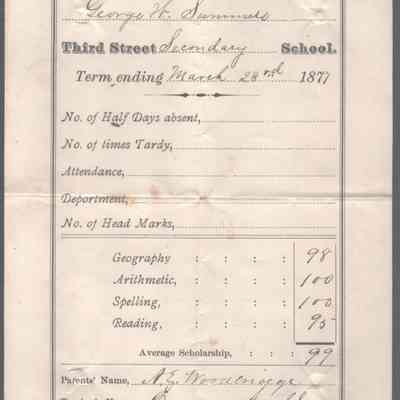 George W. Summers
Third Street Secondary School.
Term ending March 23rd 1877
No. of Half Days absent,
No. of times Tardy,
Attendance,
Deportment,
No. of Head Marks,
Geography : : : : 98
Arithmetic, : : : : 100
Spelling, : : : : 100
Reading, : : : : 95
Average Scholarship, : : : 99
Parents' Name, A. E.